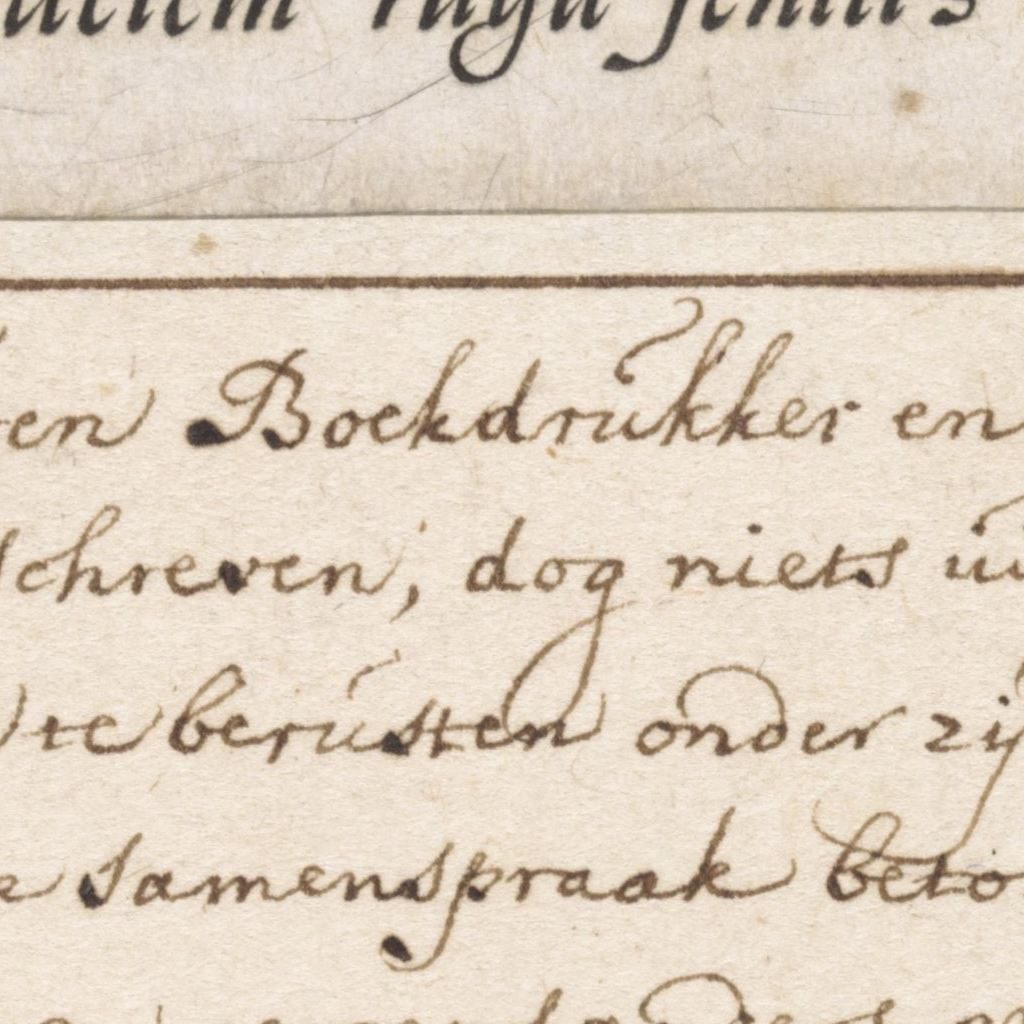 ruga senilis
en Boekdrukker en
schreven, dog niets
te berusten onder zij
samenspraak beto